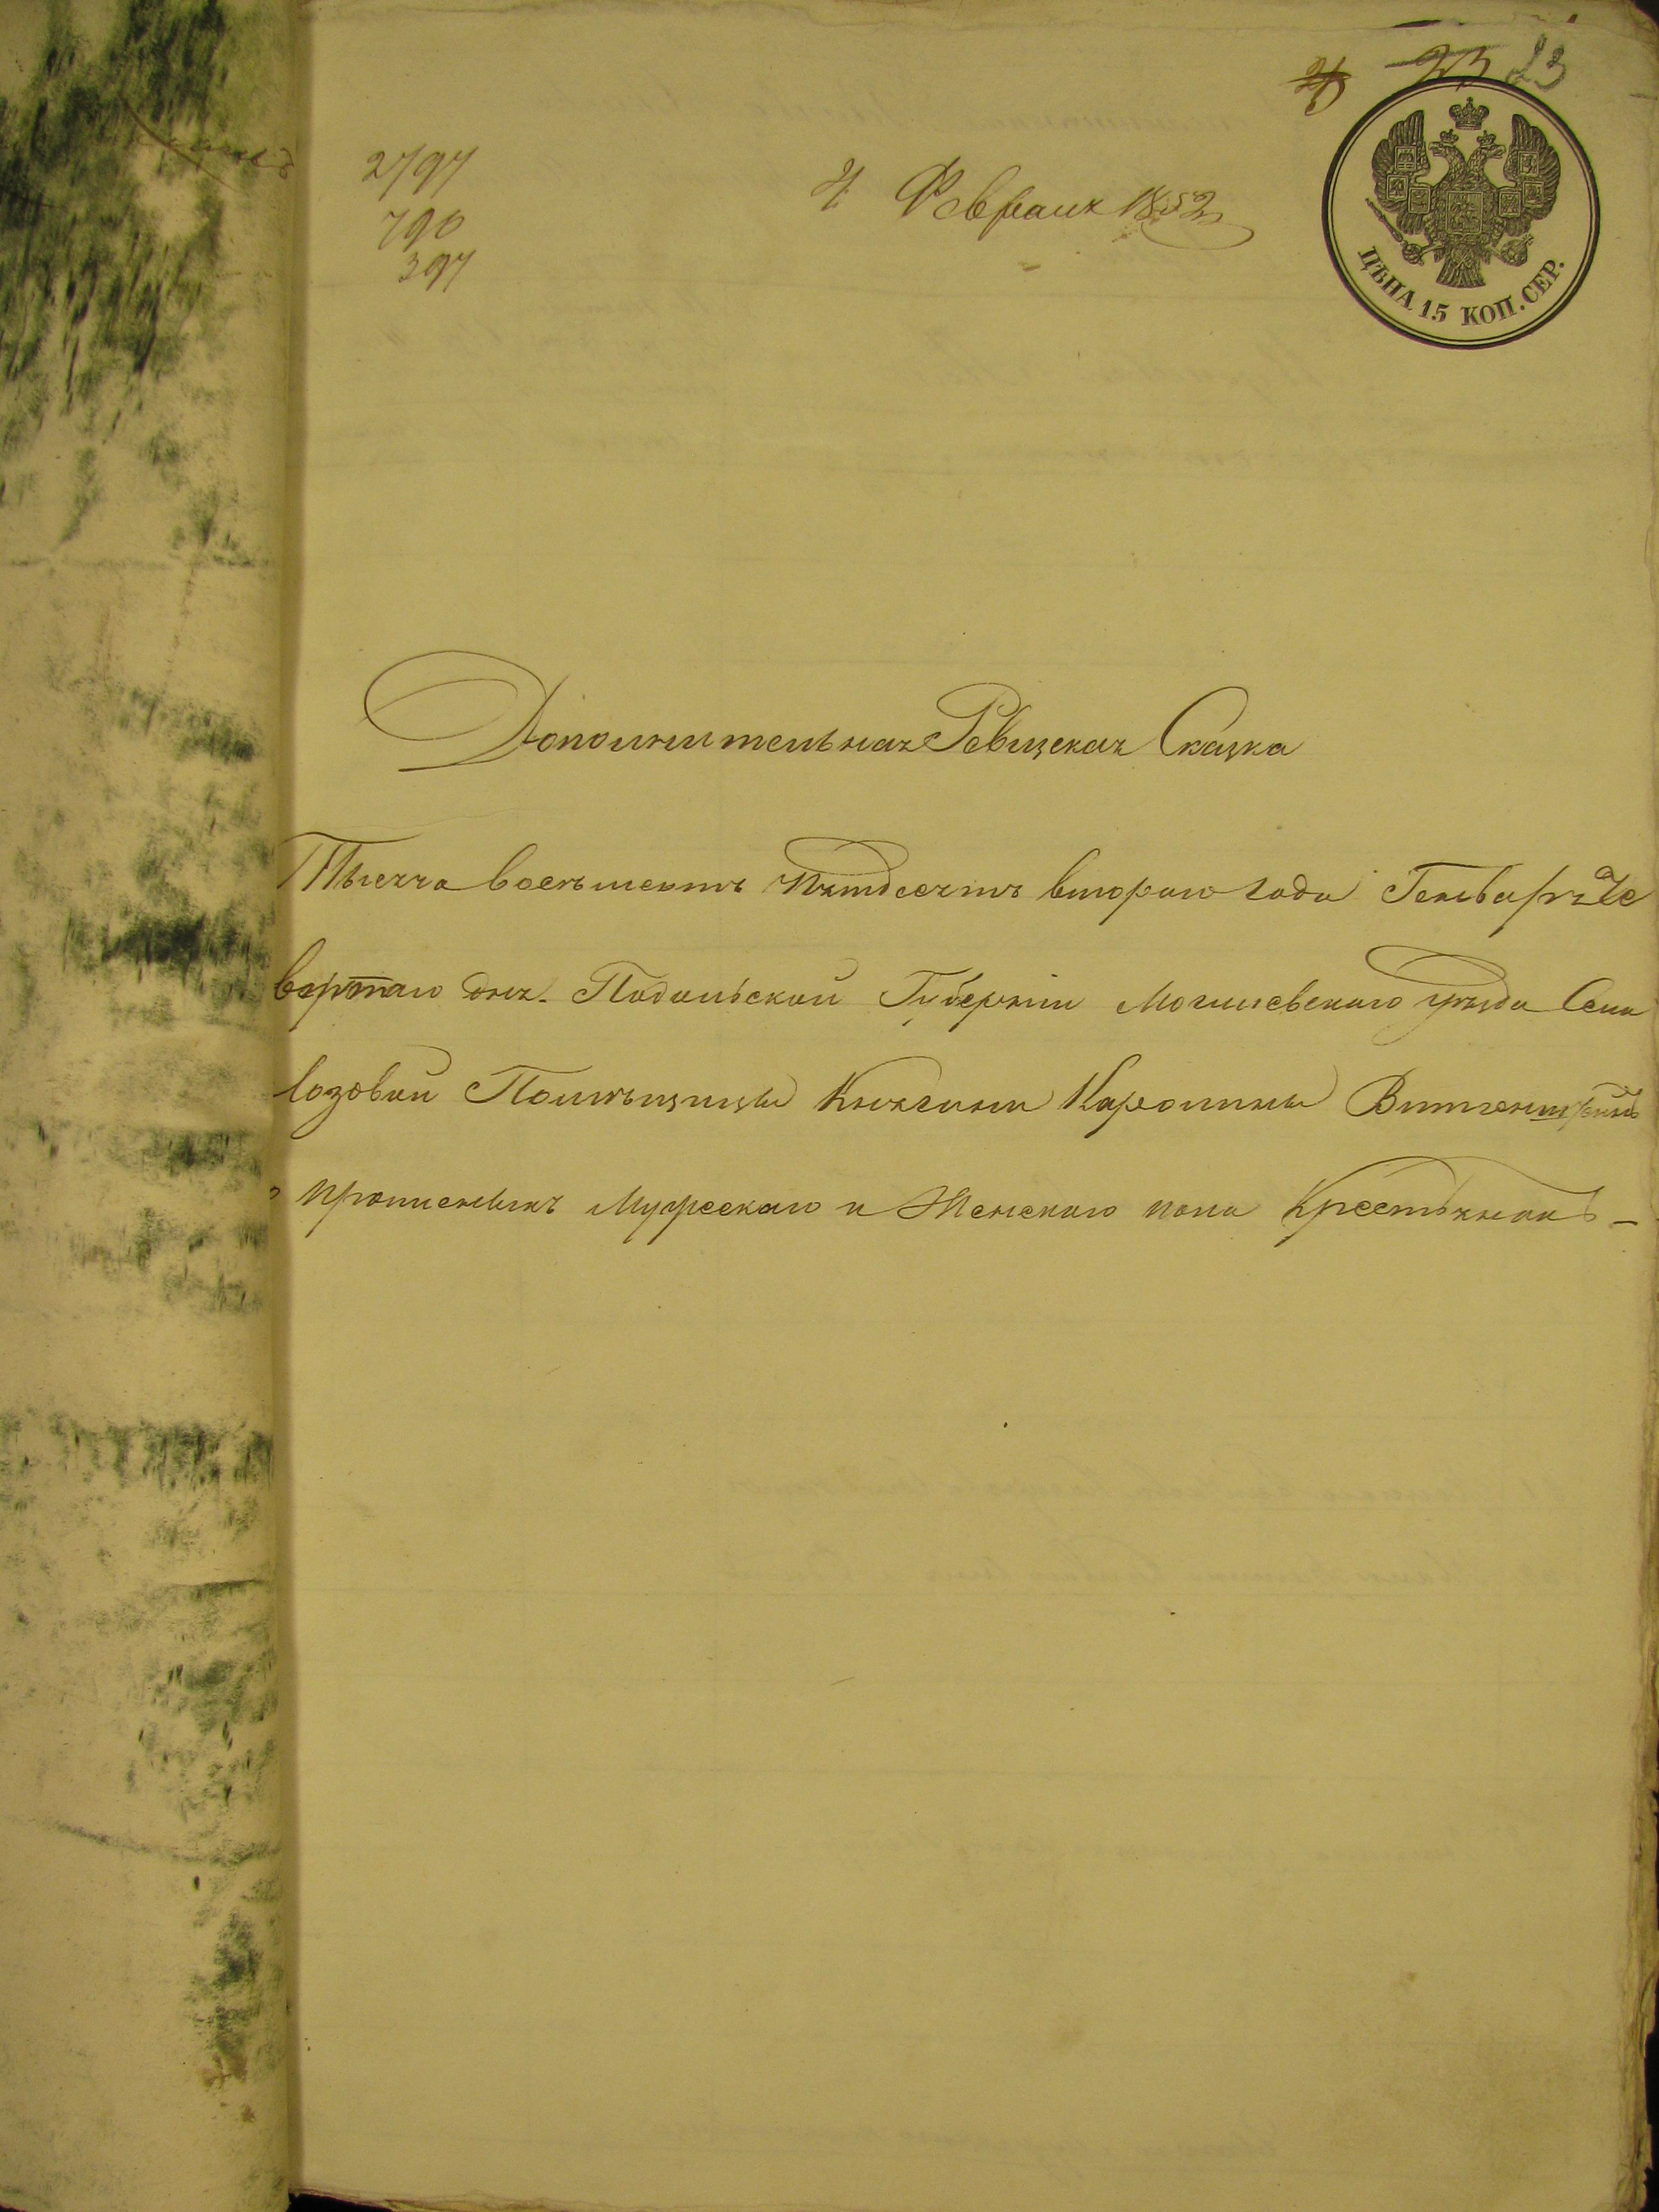 23 23
2797
790
397
4 Февраля 1852
ЦѢНА 15 КОП. СЕР.
Дополнительная Ревизская Сказка
Тысяча восемьсотъ пятдесятъ втораго года Генваря Че
вертаго дня. Подольской Губерніи Могилевскаго уѣзда Села
Лозовой Помѣщицы Княгини Каролины Витгенштейнъ
о прописныхъ Мужескаго и Женскаго пола Крестьянахъ –